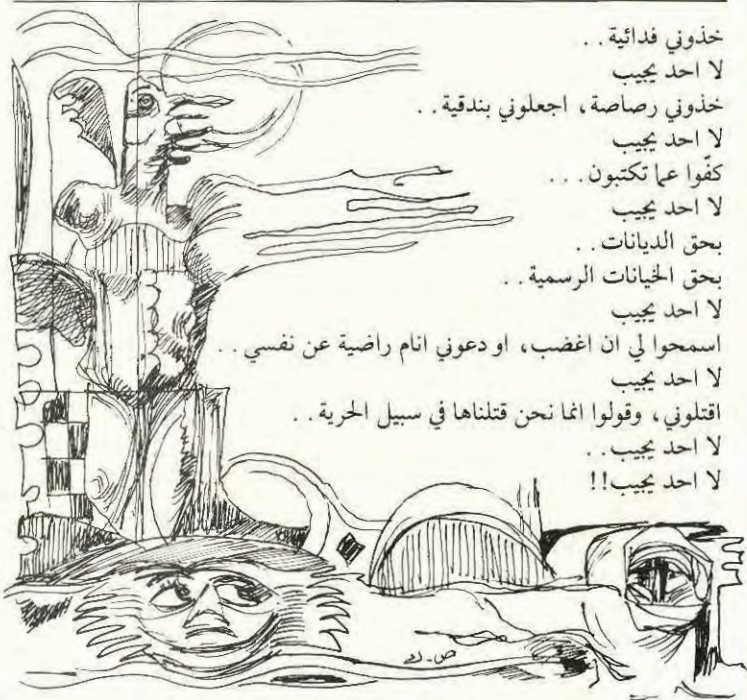 خذوني فدائية . .
لا احد يجيب
خذوني رصاصة ، اجعلوني بندقية . .
لا احد يجيب
كفّوا عما تكتبون . . .
لا احد يجيب
بحق الديانات . .
بحق الخيانات الرسمية . .
لا احد يجيب
اسمحوا لي ان اغضب، او دعوني انام راضية عن نفسي . .
لا احد يجيب
اقتلوني، وقولوا انما نحن قتلناها في سبيل الحرية . .
لا احد يجيب . .
لا احد يجيب!!